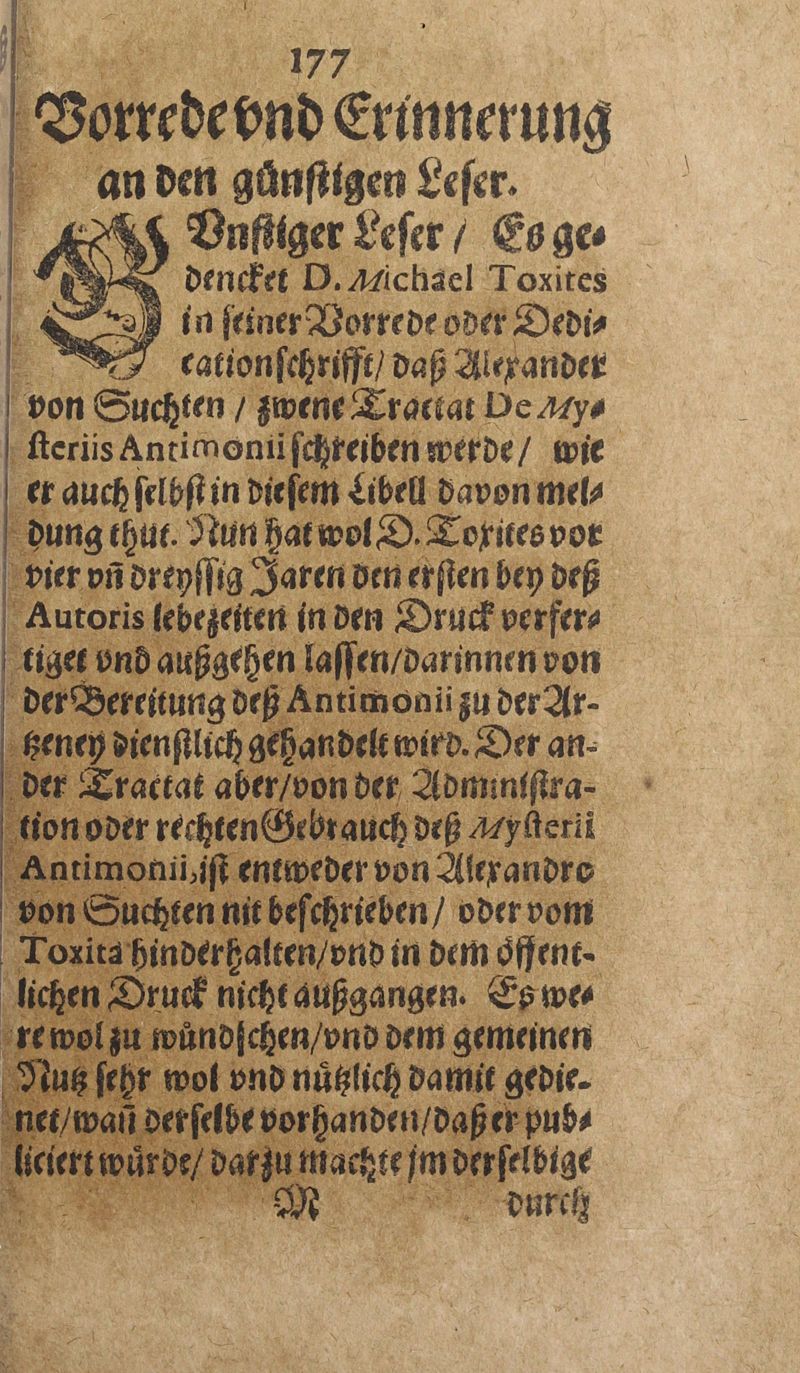 177
Vorrede vnd Erinnerung
an den günstigen Leser.
GVnstiger Leser / Es ge⸗
dencket D. Michael Toxites
in seiner Vorrede oder Dedi⸗
cationschrifft / daß Alexander
von Suchten / zwene Tractat De My⸗
steriis Antimonii schreiben werde / wie
er auch selbst in diesem Libell davon mel⸗
dung thut. Nun hat wol D. Toxites vor
vier vn̄ dreyssig Jaren den ersten bey deß
Autoris lebezeiten in den Druck verfer⸗
tiget vnd außgehen lassen/darinnen von
der Bereitung deß Antimonii zu der Ar-
tzeney dienstlich gehandelt wird. Der an-
der Tractat aber/von der Administra-
tion oder rechten Gebrauch deß Mysterii
Antimonii,ist entweder von Alexandro
von Suchten nit beschrieben / oder vom
Toxita hinderhalten/vnd in dem öffent-
lichen Druck nicht außgangen. Es we⸗
re wol zu wündschen/vnd dem gemeinen
Nutz sehr wol vnd nützlich damit gedie-
net/wañ derselbe vorhanden/daß er pub⸗
liciert würde/ darzu machte jm derselbige
M durch